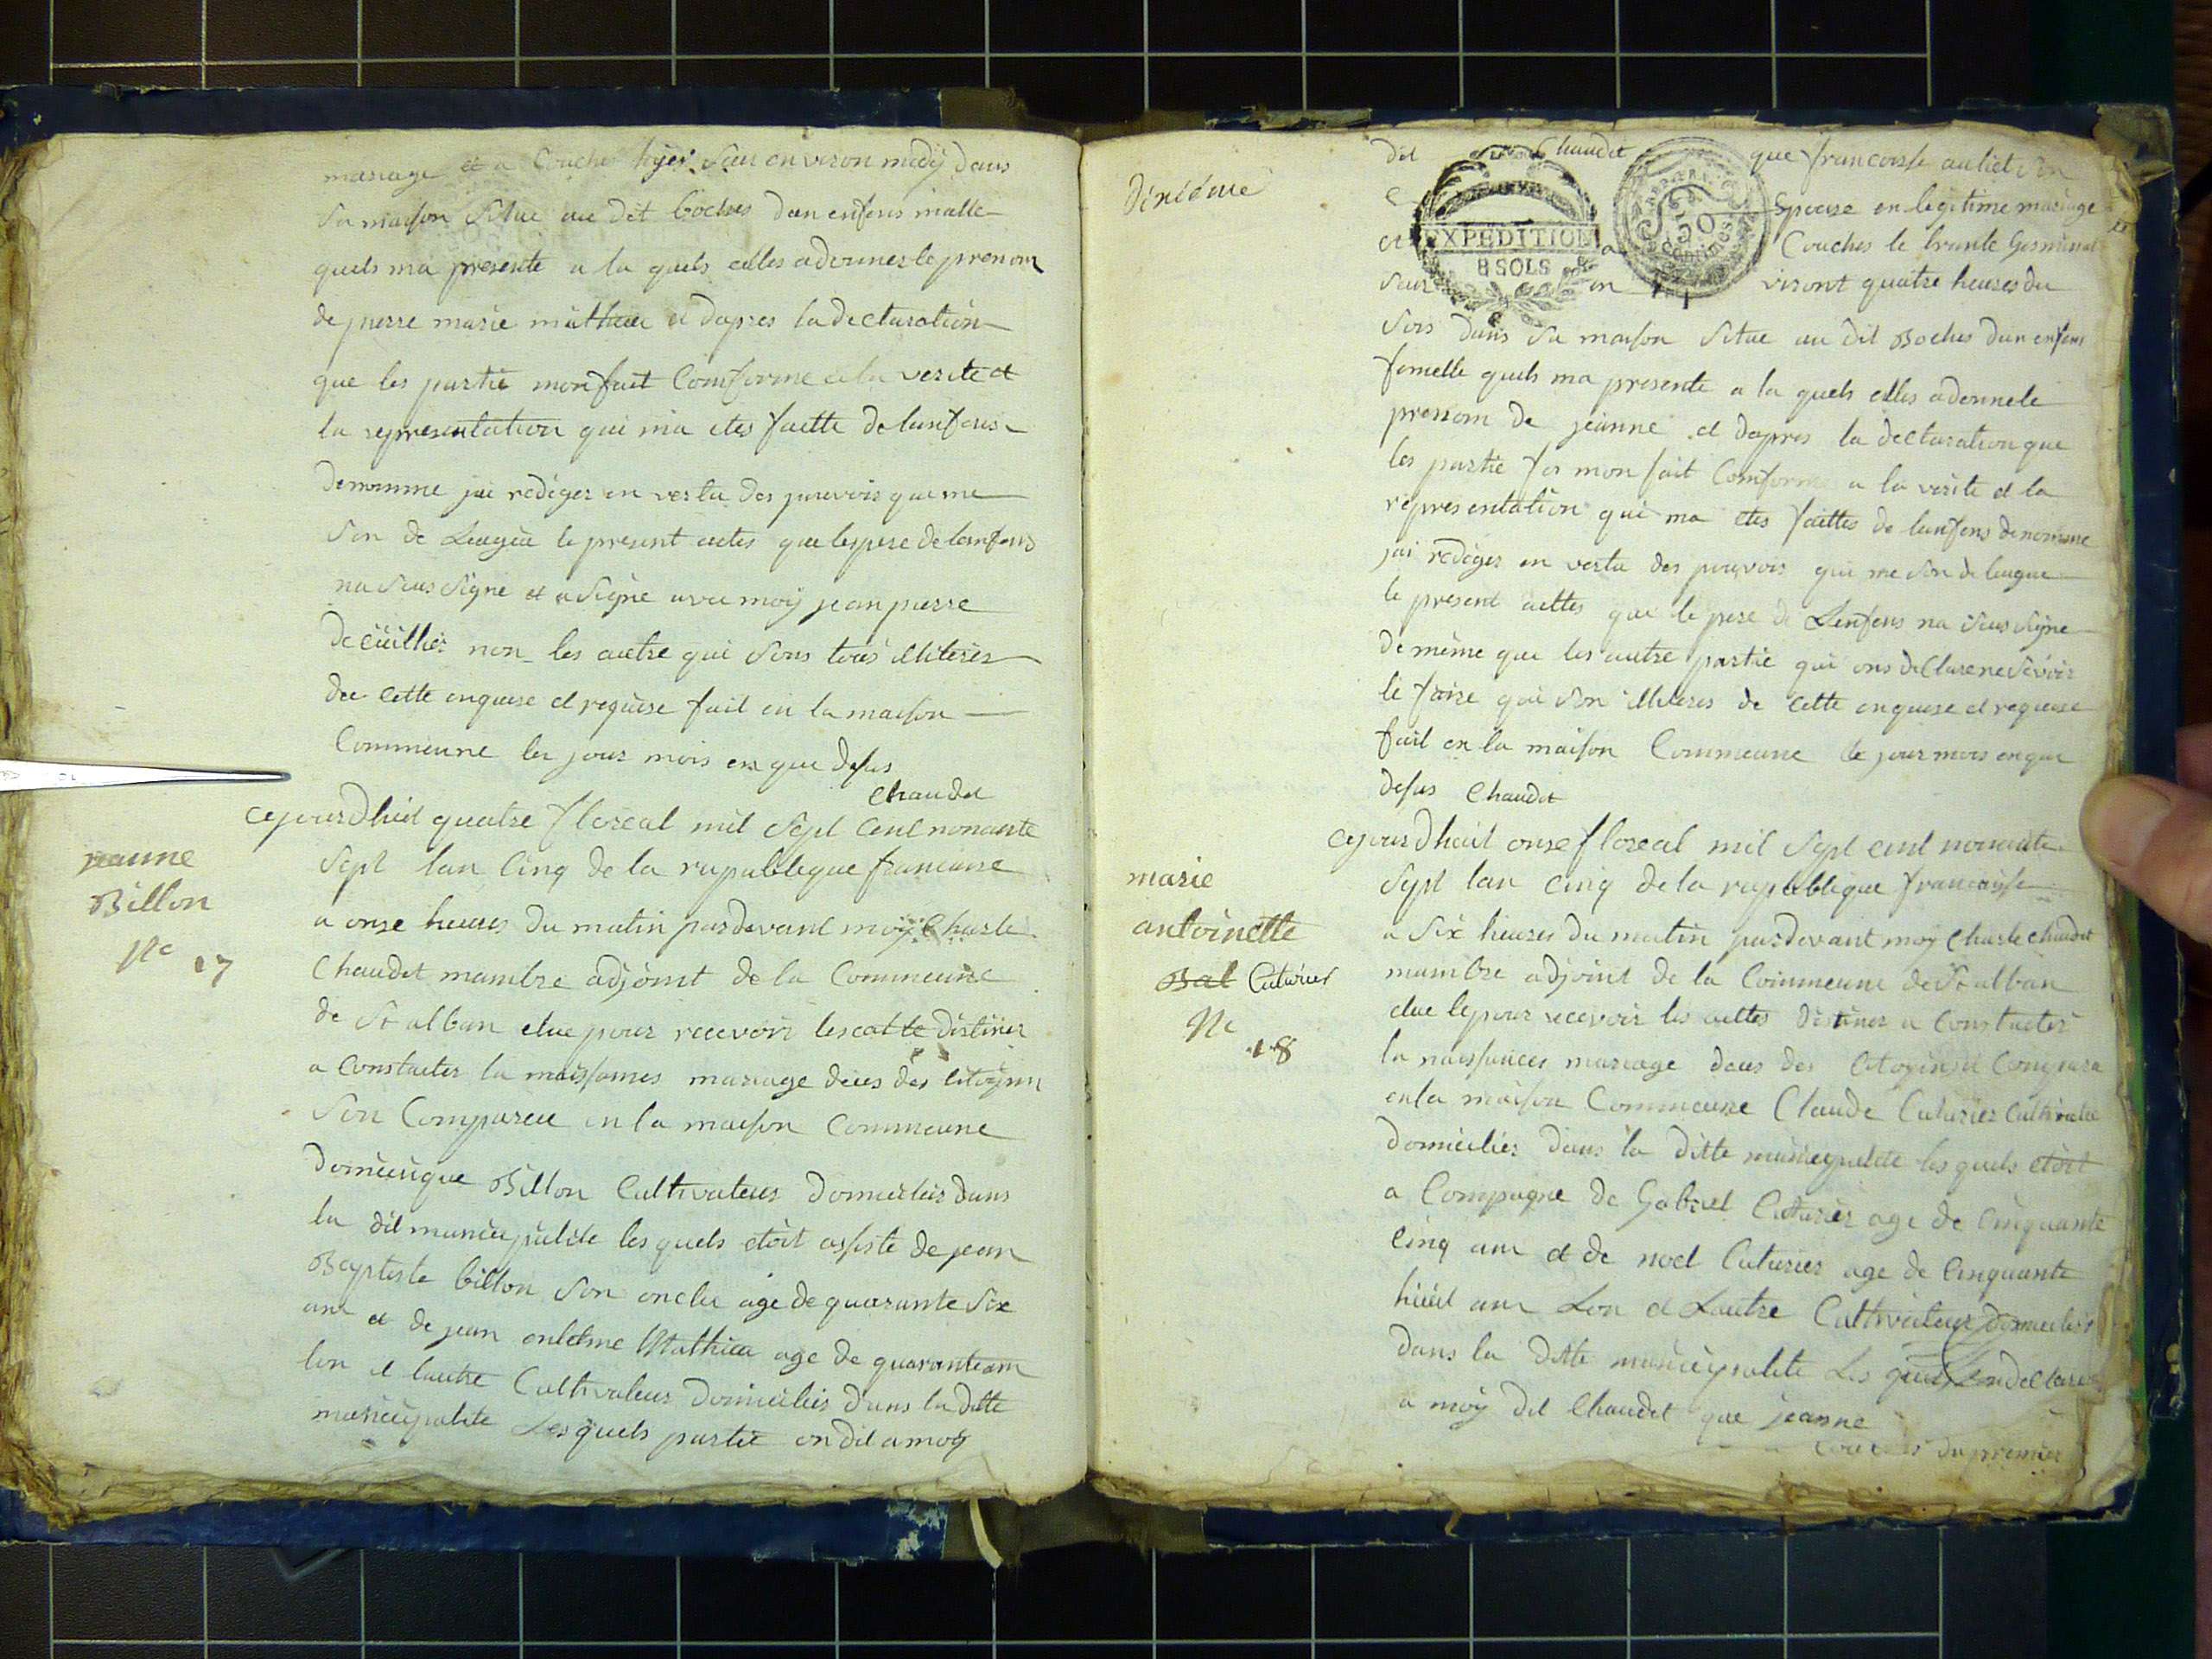 mariage et a Couche hyer Sur environ midy dans
Sa maison Situe au dit boches dun enfens malle
quels ma presente a la quels elles adonnez le prenom
de pierre marie mathieu et dapres la declaration
que les partie mon fait Comforme a la verite et
la representation qui ma etes faitte de lanfens
denomme jai rediger en vertu des pouvois que me
Son de Leugue le present actes que les pere de lenfens
na Sous Signe et a Signe avec moy jean pierre
non les autre qui Sons tous illiteres
de cette enquise et requise fait en la maison
Commeune les jour mois en que desus
Chaudet
jeanne
Billon
No 17
cejourdhuit quatre floreal mil Sept Cent nonante
Sept lan Cinq de la republique francaise
a onze heures du matin pardevant moy Charle
Chaudet mambre adjoint de la Commeune
de St alban elue pour recevoir les acte distines
a Constater la naissances mariage deces des Citoyens
Son Compareu en la maison Commeune
Domicique Billon Cultivateur domicilies dans
la dit municipalite les quels etoit assiste de jean
Baptiste billon Son oncle age de quarante Six
ans et de jean enteleme Mathieu age de quarante ans
lon et lautre Cultivateur Domicilies dans la ditte
municipalite Lesquels partie on dit a moy
dixieme
dit Chaudet que francoise
Epouse en legitime mariage
et a Couches le trente Germinal
Sur en viront quatre heures du
Soir dans Sa maison Situe au dit Boches dun enfens
femelle quels ma presente a la quels elles adonnele
prenom de jeanne et dapres la declaration que
les partie mon fait Comforme a la verite et la
representation qui ma etes faittes de lanfens denomme
jai rediger en vertu des pouvois qui me Son de leugue
le present acttes que le pere de Lenfens na Sous Signe
de même que les autre partie qui ons declare ne Sévoir
le faire qui Son illiteres de cette enquise et requise
fait en la maison Commeune le jour mois en que
desus Chaudet
EXPEDITION
8 SOLS
50
Centimes
marie
antoinette
Bal Cuturier
No
18
cejourdhuit onze floreal mil Sept cent nonante
Sept lan Cinq de la republique francaise
a Six heures du matin pardevant moy Charle chaudet
mambre adjoint de la Commeune de St alban
elue lepour recevoir les acttes destines a Constater
la naissances mariage deces des Citoyens Compara
en la maison Commeune Claude Cuturier Cultivateur
Domicilies dans la ditte municipalite les quels etoit
a Compagne de Gabriel Cuturier age de Cinquante
Cinq ans et de noel Cuturier age de Cinquante
huit ans Lon et Lautre Cultivateur Domicilies
dans la ditte municipalite Les quels on declare
a moy dit Chaudet que jeanne
Couches du premier